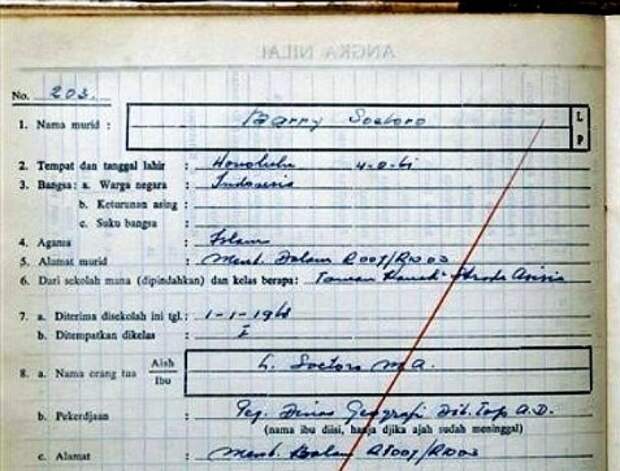 ANGKA NILAI
No. 203.
1. Nama murid : Barry Soetoro L
P
2. Tempat dan tanggal lahir : Honolulu 4-8-61
3. Bangsa: a. Warga negara : Indonesia
b. Keturunan asing :
c. Suku bangsa :
4. Agama : Islam
5. Alamat murid : Ment. Dalam R007/R003
6. Dari sekolah mana (dipindahkan) dan kelas berapa: Taman Kanak² Strada Asisia
7. a. Diterima disekolah ini tgl.: 1-1-1968
b. Ditempatkan dikelas : I
8. a. Nama orang tua Ajah : L. Soetoro M.A.
Ibu
b. Pekerdjaan : Peg. Dinas Geografi Dit. Top. A.D.
(nama ibu diisi, hanja djika ajah sudah meninggal)
c. Alamat : Ment. Dalam RT007/R003